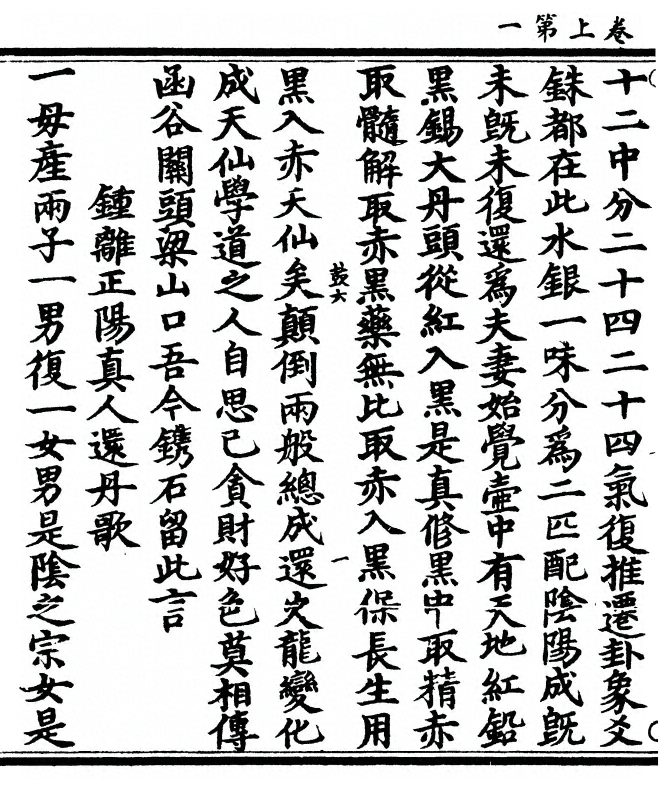 卷上第一
十二中分二十四二十四氣復推遷卦象爻
銖都在此水銀一味分爲二匹配陰陽成旣
未旣未復還爲夫妻始覺壷中有天地紅鉛
黑錫大丹頭從紅入黑是真修黑中取精赤
取髓解取赤黑藥無比取赤入黑保長生用
黑入赤天仙矣顛倒兩般總成還火龍變化
鼓六
一
成天仙學道之人自思已貪財好色莫相傳
函谷關頭梁山口吾今鐫石留此言
鍾離正陽真人還丹歌
一母産兩子一男復一女男是陰之宗女是